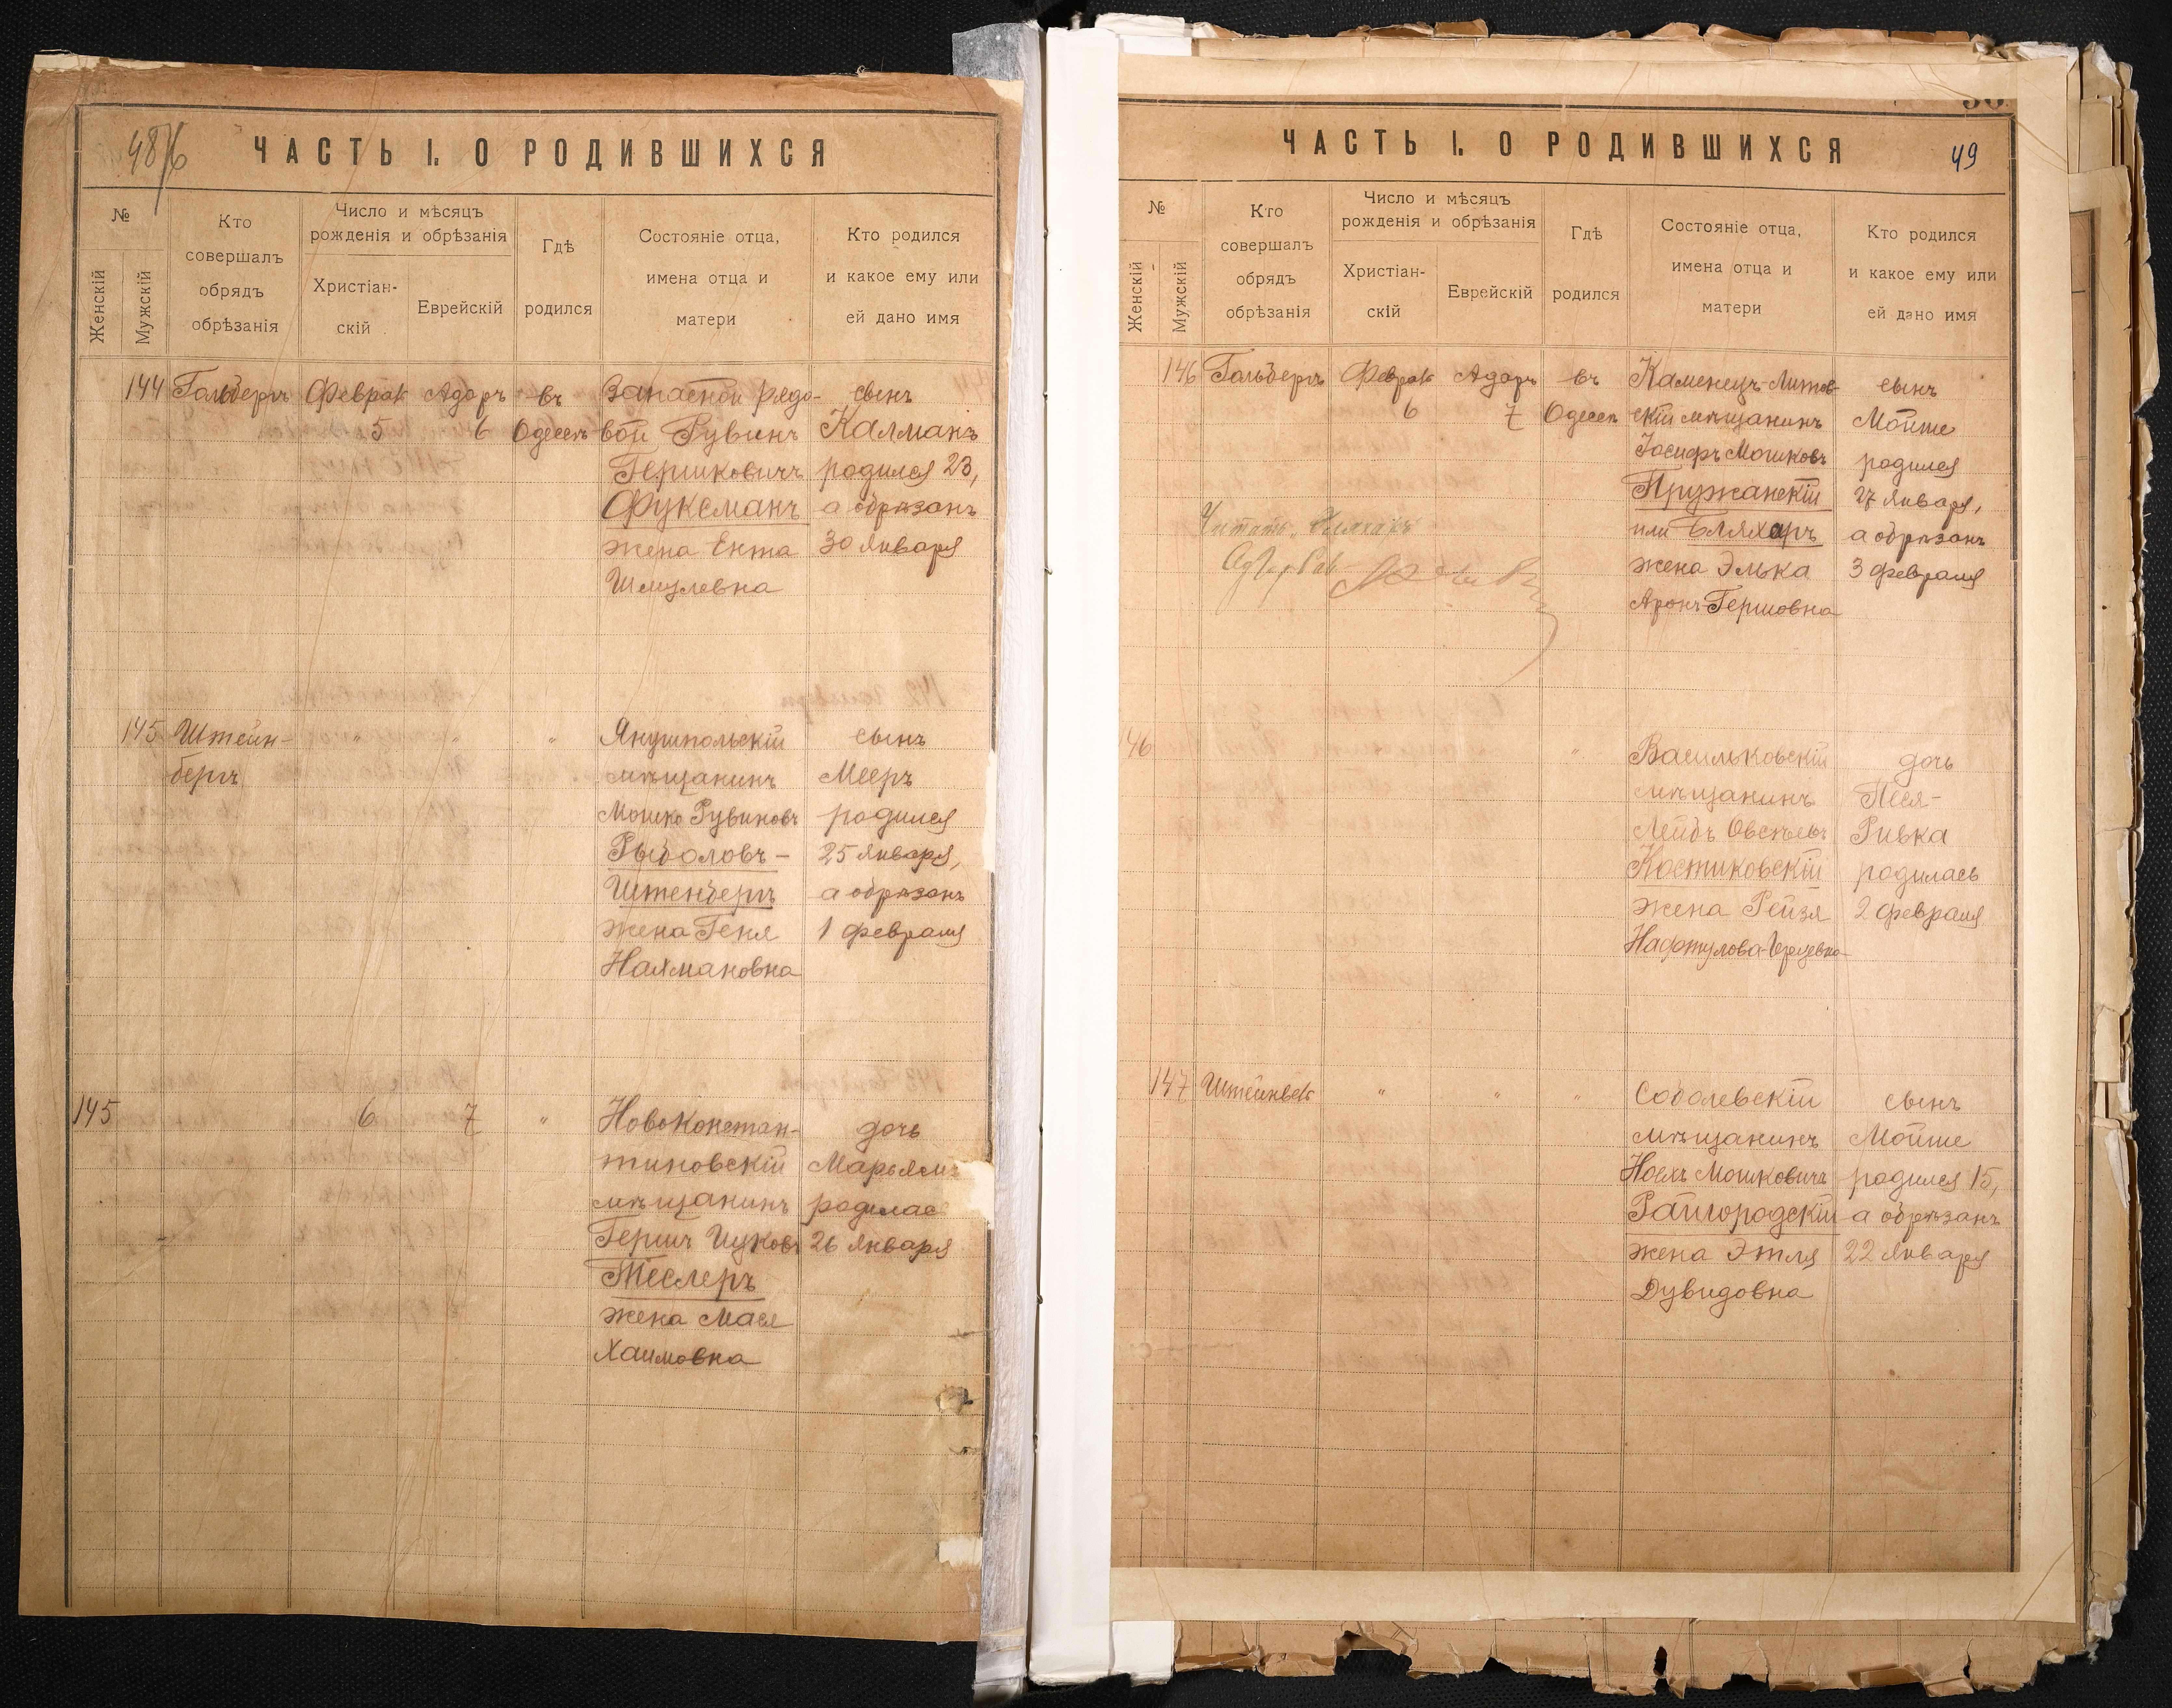 48
ЧАСТЬ I. О РОДИВШИХСЯ
№
Женскій
Мужскій
Кто
совершалъ
обрядъ
обрѣзанія
Число и мѣсяцъ
рожденія и обрѣзанія
Христіан-
скій
Еврейскій
Гдѣ
родился
Состояніе отца,
имена отца и
матери
Кто родился
и какое ему или
ей дано имя
144 Гольдбергъ Феврал Адаръ въ Запасной рядо- сынъ
5 6 Одессѣ вой Рувинъ Калманъ
Гершковичъ родился 23,
Фуксманъ а обрѣзанъ
жена Ента 30 Января
Шмулевна
145 Штейн- " " " Янушпольскій сынъ
бергъ мѣщанинъ Мееръ
Мошко Рувиновъ родился
Рыболовъ- 25 Января,
Штенбергъ а обрѣзанъ
жена Геня 1 февраля
Нахмановна
145 6 7 " Новоконстан- дочь
тиновскій Марьямъ
мѣщанинъ родилас
Гершъ Ицковъ 26 Января
Теслеръ
жена Мася
Хаимовна
ЧАСТЬ I. О РОДИВШИХСЯ
49
№
Женскій
Мужскій
Кто
совершалъ
обрядъ
обрѣзанія
Число и мѣсяцъ
рожденія и обрѣзанія
Христіан-
скій
Еврейскій
Гдѣ
родился
Состояніе отца,
имена отца и
матери
Кто родился
и какое ему или
ей дано имя
146 Гольдбергъ Феврал Адаръ въ Каменецъ-Литов- сынъ
6 7 Одессѣ скій мѣщанинъ Мойше
Іосифъ Мошковъ родился
Пружанскій 27 Января,
или Бляхаръ а обрѣзанъ
жена Элька 3 февраля
Аронъ-Гершовна
Читать "Бляхаръ"
146 " Васильковскій дочь
мѣщанинъ Песя-
Лейбъ Овсѣевъ Ривка
Костиковскій родилась
жена Рейзя 2 февраля
Нафтулова-Герцевна
147 " " " Соболевскій сынъ
мѣщанинъ Мойше
Ноехъ Мошковичъ родился 15,
Райгородскій а обрѣзанъ
жена Этля 22 Января
Дувидовна